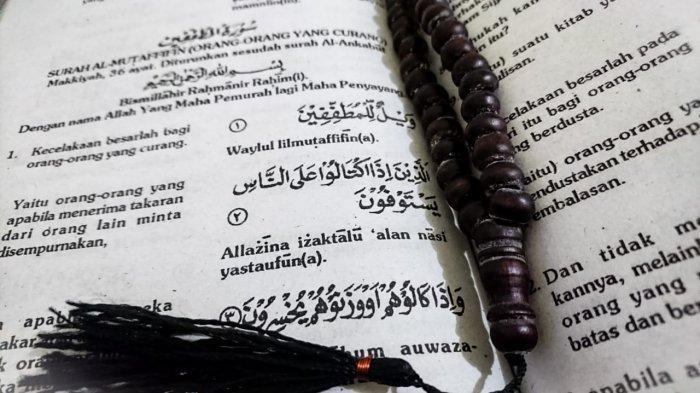 mannlin(n).
سُوْرَةُ الْمُطَفِّفِيْنَ
SURAH AL-MUTAFFIFIN (ORANG-ORANG YANG CURANG)
Makkiyah, 36 ayat. Diturunkan sesudah surah Al-Ankabu
بِسْمِ اللهِ الرَّحْمٰنِ الرَّحِيْمِ
Bismillāhir Rahmānir Rahīm(i).
Dengan nama Allah Yang Maha Pemurah lagi Maha Penyayang
1. Kecelakaan besarlah bagi
orang-orang yang curang.
وَيْلٌ لِّلْمُطَفِّفِيْنَ
①
Waylul lilmutaffifīn(a).
Yaitu orang-orang yang
apabila menerima takaran
dari orang lain minta
disempurnakan,
الَّذِيْنَ اِذَا اكْتَالُوْا عَلَى النَّاسِ
يَسْتَوْفُوْنَ
②
Allażīna iżaktālū 'alan nāsi
yastaufūn(a).
وَاِذَا كَالُوْهُمْ اَوْ وَّزَنُوْهُمْ يُخْسِرُوْنَ ③
auwaza-
itu?
) suatu kitab y
disan.
celakaan besarlah pada
ri itu bagi orang-orang
g berdusta.
tu) orang-orang ya
ndustakan terhadap
embalasan.
Dan tidak
kannya, melain
orang yang
batas dan ber
apabila a